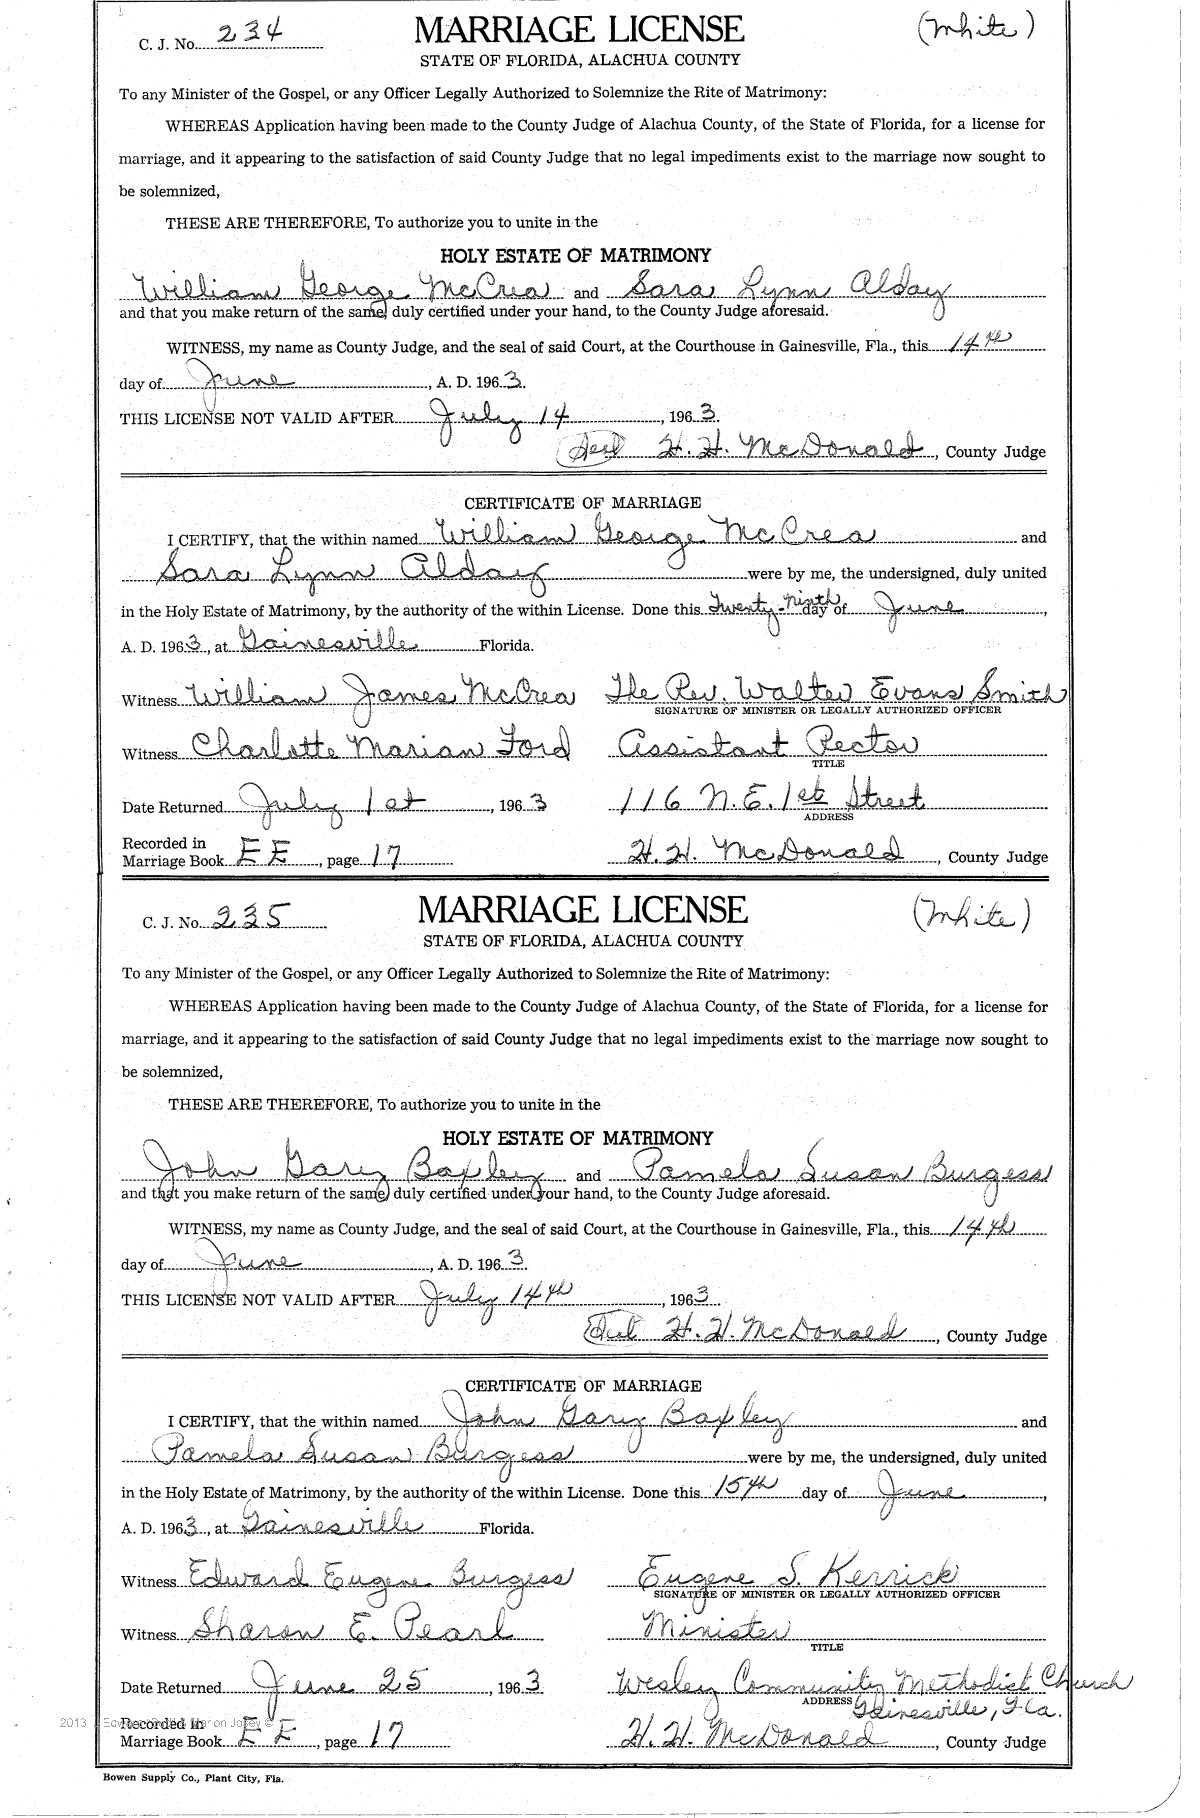 C. J. No. 234 MARRIAGE LICENSE (White)
STATE OF FLORIDA, ALACHUA COUNTY
To any Minister of the Gospel, or any Officer Legally Authorized to Solemnize the Rite of Matrimony:
WHEREAS Application having been made to the County Judge of Alachua County, of the State of Florida, for a license for
marriage, and it appearing to the satisfaction of said County Judge that no legal impediments exist to the marriage now sought to
be solemnized,
THESE ARE THEREFORE, To authorize you to unite in the
HOLY ESTATE OF MATRIMONY
William George McCrea and Sara Lynn Alday
and that you make return of the same, duly certified under your hand, to the County Judge aforesaid.
WITNESS, my name as County Judge, and the seal of said Court, at the Courthouse in Gainesville, Fla., this 14th
day of June, A. D. 1963.
THIS LICENSE NOT VALID AFTER July 14, 1963
(Seal) H. H. McDonald, County Judge
CERTIFICATE OF MARRIAGE
I CERTIFY, that the within named William George McCrea and
Sara Lynn Alday were by me, the undersigned, duly united
in the Holy Estate of Matrimony, by the authority of the within License. Done this Twenty-ninth day of June,
A. D. 1963, at Gainesville Florida.
Witness William James McCrea The Rev. Walter Evans Smith
SIGNATURE OF MINISTER OR LEGALLY AUTHORIZED OFFICER
Witness Charlotte Marian Ford Assistant Rector
TITLE
Date Returned July 1st, 1963 116 N.E. 1st Street
ADDRESS
Recorded in
Marriage Book EE, page 17 H. H. McDonald, County Judge
C. J. No. 235 MARRIAGE LICENSE (White)
STATE OF FLORIDA, ALACHUA COUNTY
To any Minister of the Gospel, or any Officer Legally Authorized to Solemnize the Rite of Matrimony:
WHEREAS Application having been made to the County Judge of Alachua County, of the State of Florida, for a license for
marriage, and it appearing to the satisfaction of said County Judge that no legal impediments exist to the marriage now sought to
be solemnized,
THESE ARE THEREFORE, To authorize you to unite in the
HOLY ESTATE OF MATRIMONY
John Gary Baxley and Pamela Susan Burgess
and that you make return of the same, duly certified under your hand, to the County Judge aforesaid.
WITNESS, my name as County Judge, and the seal of said Court, at the Courthouse in Gainesville, Fla., this 14th
day of June, A. D. 1963.
THIS LICENSE NOT VALID AFTER July 14th, 1963
(Seal) H. H. McDonald, County Judge
CERTIFICATE OF MARRIAGE
I CERTIFY, that the within named John Gary Baxley and
Pamela Susan Burgess were by me, the undersigned, duly united
in the Holy Estate of Matrimony, by the authority of the within License. Done this 15th day of June,
A. D. 1963, at Gainesville Florida.
Witness Edward Eugene Burgess Eugene S. Kerrick
SIGNATURE OF MINISTER OR LEGALLY AUTHORIZED OFFICER
Witness Sharon E. Pearl Minister
TITLE
Date Returned June 25, 1963 Wesley Community Methodist Church
ADDRESS Gainesville, Fla.
2013
Recorded in
Marriage Book EE, page 17 H. H. McDonald, County Judge
Bowen Supply Co., Plant City, Fla.